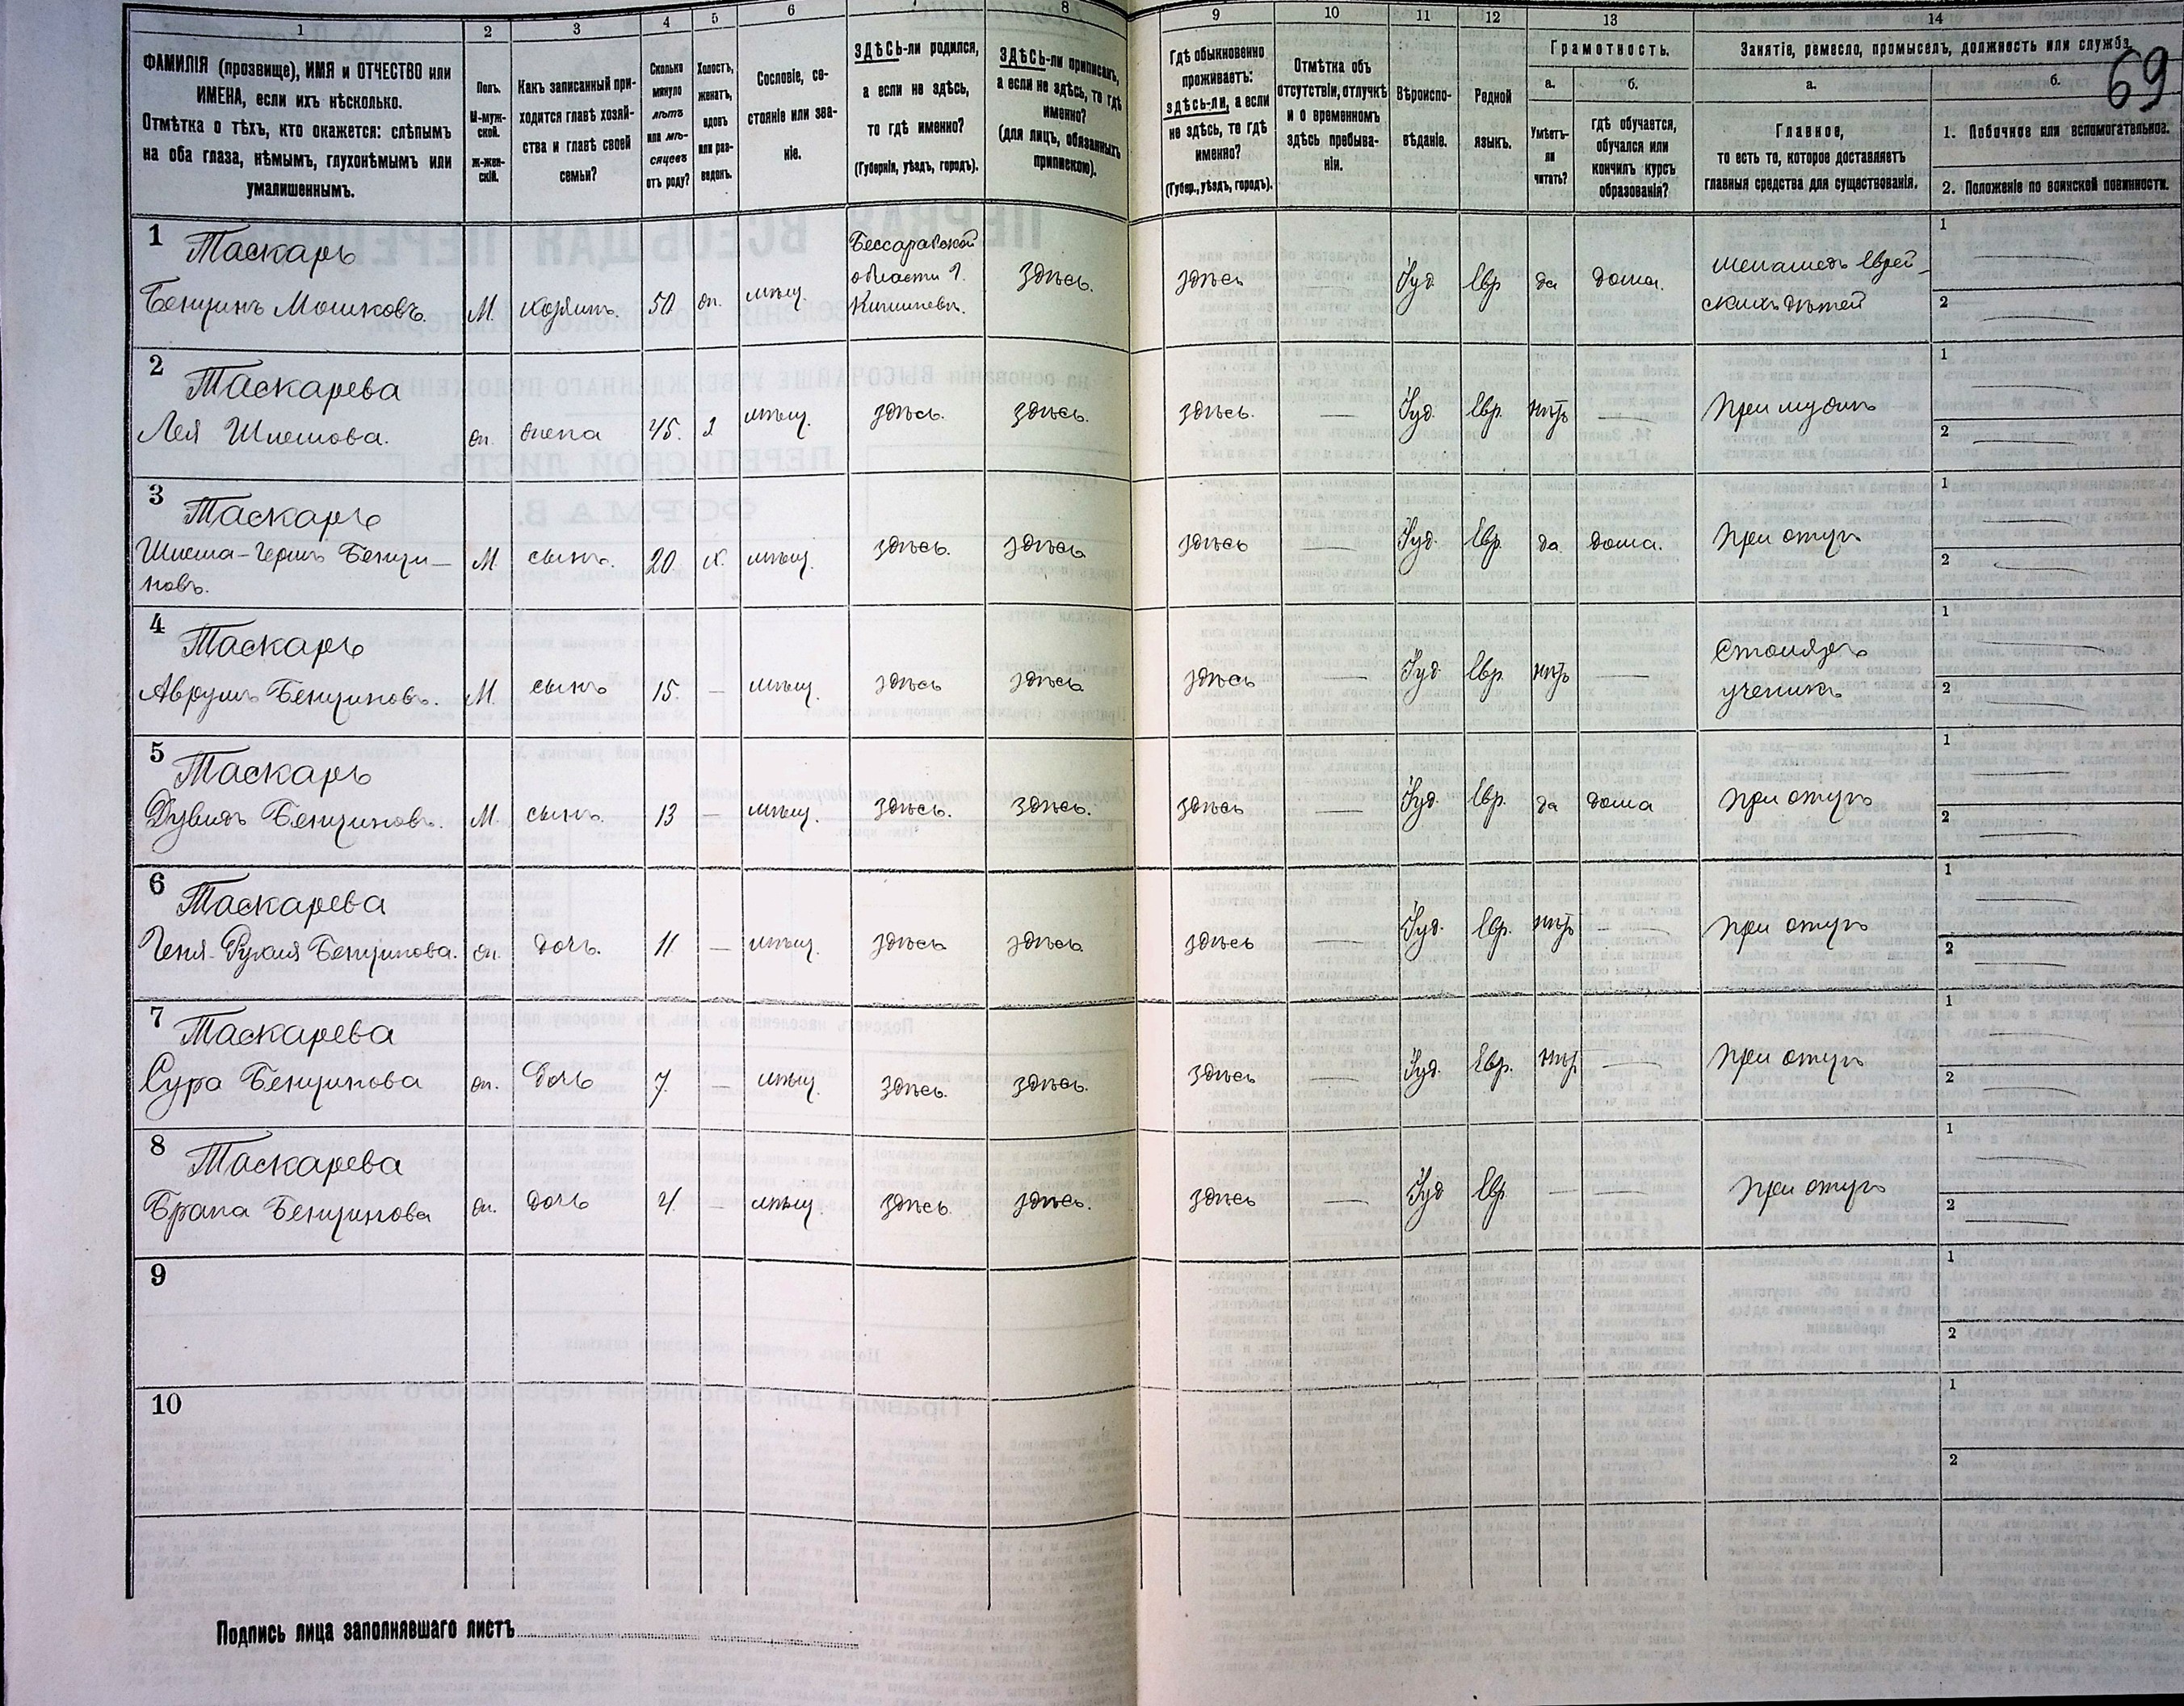 69
1 2 3 4 5 6 7 8 9 10 11 12 13 14
ФАМИЛІЯ (прозвище), ИМЯ и ОТЧЕСТВО или ИМЕНА, если ихъ нѣсколько.
Отмѣтка о тѣхъ, кто окажется: слѣпымъ на оба глаза, нѣмымъ, глухонѣмымъ или умалишеннымъ.
Полъ. М-мужской. ж-женскій.
Какъ записанный приходится главѣ хозяйства и главѣ своей семьи?
Сколько минуло лѣтъ или мѣсяцевъ отъ роду?
Холостъ, женатъ, вдовъ или разведенъ.
Сословіе, состояніе или званіе.
ЗДѢСЬ-ли родился, а если не здѣсь, то гдѣ именно? (Губернія, уѣздъ, городъ).
ЗДѢСЬ-ли приписанъ, а если не здѣсь, то гдѣ именно? (для лицъ, обязанныхъ припискою).
Гдѣ обыкновенно проживаетъ: здѣсь-ли, а если не здѣсь, то гдѣ именно? (Губер., уѣздъ, городъ).
Отмѣтка объ отсутствіи, отлучкѣ и о временномъ здѣсь пребываніи.
Вѣроисповѣданіе.
Родной языкъ.
Грамотность.
а. Умѣетъ-ли читать?
б. гдѣ обучается, обучался или кончилъ курсъ образованія?
Занятіе, ремесло, промыселъ, должность или служба.
а. Главное, то есть то, которое доставляетъ главныя средства для существованія.
б. 1. Побочное или вспомогательное.
2. Положеніе по воинской повинности.
1 Таскарь
Бенционъ Мошковъ. М. хозяинъ. 50 ж. мѣщ. Бессарабской области г. Кишиневъ. здѣсь. здѣсь Іуд Евр да дома. меламедъ Еврейскихъ дѣтей 1 2
2 Таскарева
Лея Шлемова. ж. жена 45. з мѣщ. здѣсь. здѣсь. здѣсь. — Іуд. Евр. нѣтъ — при мужѣ 1 2
3 Таскарь
Шлема-Гершъ Бенционовъ. М сынъ. 20. х. мѣщ. здѣсь. здѣсь здѣсь — Іуд. Евр. да дома. при отцѣ 1 2
4 Таскарь
Аврумъ Бенционовъ. М. сынъ 15. — мѣщ. здѣсь здѣсь здѣсь — Іуд Евр. нѣтъ — Столяръ ученикъ 1 2
5 Таскарь
Дувидъ Бенционовъ. М. сынъ. 13 — мѣщ. здѣсь. здѣсь. здѣсь — Іуд. Евр. да дома при отцѣ 1 2
6 Таскарева
Геня-Рухля Бенционова. ж. дочь. 11. — мѣщ. здѣсь здѣсь здѣсь — Іуд. Евр. нѣтъ — при отцѣ 1 2
7 Таскарева
Сура Бенционова ж. дочь 7. — мѣщ. здѣсь. здѣсь. здѣсь — Іуд. Евр. нѣтъ — при отцѣ 1 2
8 Таскарева
Брана Бенционова ж. дочь 4. — мѣщ. здѣсь. здѣсь. здѣсь — Іуд Евр. — — при отцѣ 1 2
9 1 2
10 1 2
Подпись лица заполнявшаго листъ